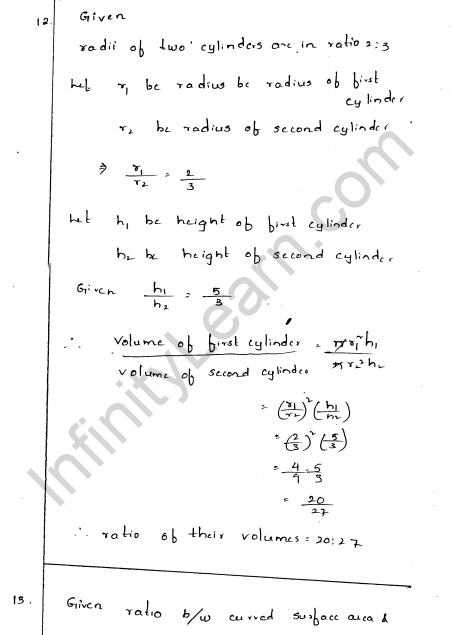 12. Given
radii of two cylinders are in ratio 2:3
Let r₁ be radius be radius of first
cylinder
r₂ be radius of second cylinder
⇒ r₁/r₂ = 2/3
Let h₁ be height of first cylinder
h₂ be height of second cylinder
Given h₁/h₂ = 5/3
∴ Volume of first cylinder / Volume of second cylinder = πr₁²h₁ / πr₂²h₂
= (r₁/r₂)² (h₁/h₂)
= (2/3)² (5/3)
= 4/9 . 5/3
= 20/27
∴ ratio of their volumes = 20:27
13. Given ratio b/w curved surface area &
InfinityLearn.com